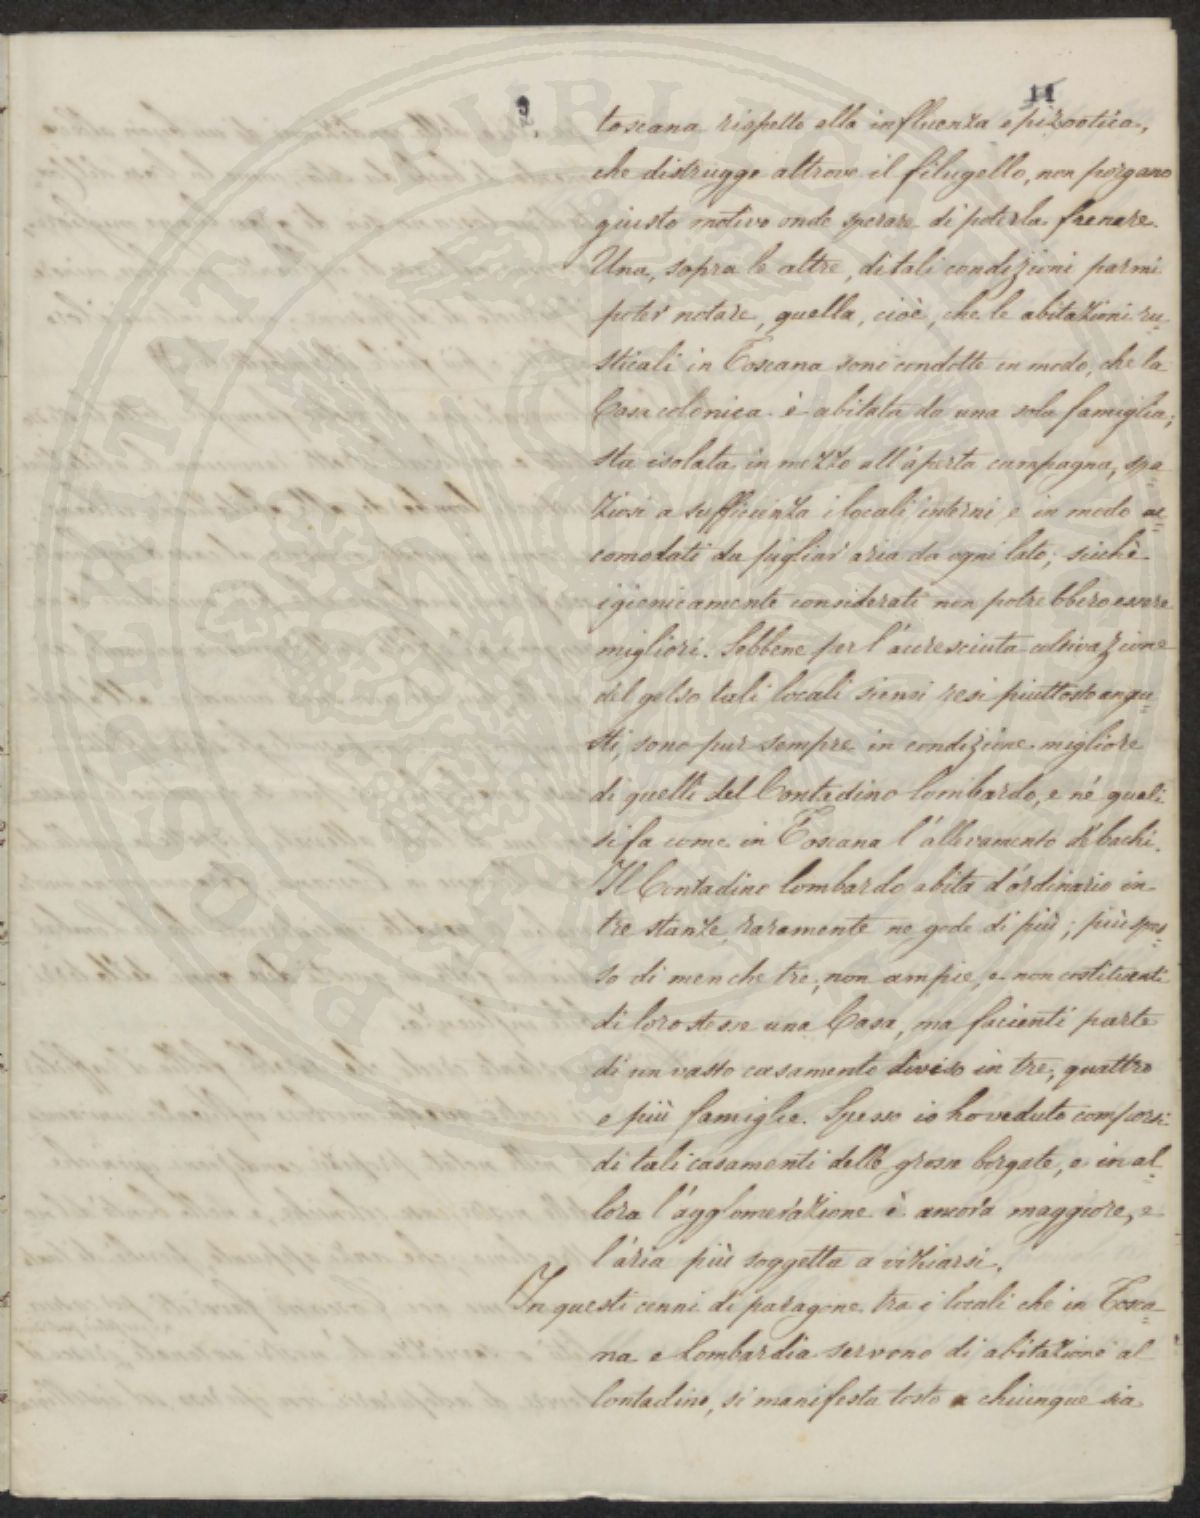 11
9
toscana rispetto alla influenza epizootica,
che distrugge altrove il filugello, non porgano
giusto motivo onde sperare di poterla frenare.
Una, sopra le altre, di tali condizioni parmi
poter notare, quella, cioè, che le abitazioni ru=
sticali in Toscana sono condotte in modo, che la
Casa colonica è abitata da una sola famiglia;
sta isolata in mezzo all'aperta campagna, spa=
ziosi a sufficienza i locali interni e in modo ac=
comodati da pigliar aria da ogni lato; sicchè
igienicamente considerati non potrebbero essere
migliori. Sebbene per l'accresciuta coltivazione
del gelso tali locali siensi resi piuttosto angu=
sti, sono pur sempre in condizione migliore
di quelli del Contadino lombardo, e né quali
si fa come in Toscana l'allevamento de' bachi.
Il Contadino lombardo abita d'ordinario in
tre stanze, raramente ne gode di più; più spes=
so di men che tre, non ampie, e non costituenti
di loro stesse una Casa, ma facienti parte
di un vasto casamento diviso in tre, quattro
e più famiglie. Spesso io ho veduto comporsi
di tali casamenti delle grosse borgate, e in al=
lora l'agglomerazione è ancora maggiore, e
l'aria più soggetta a viziarsi.
In questi cenni di paragone tra i locali che in Tosca=
na e Lombardia servono di abitazione al
Contadino, si manifesta tosto a chiunque sia
PUBLIC